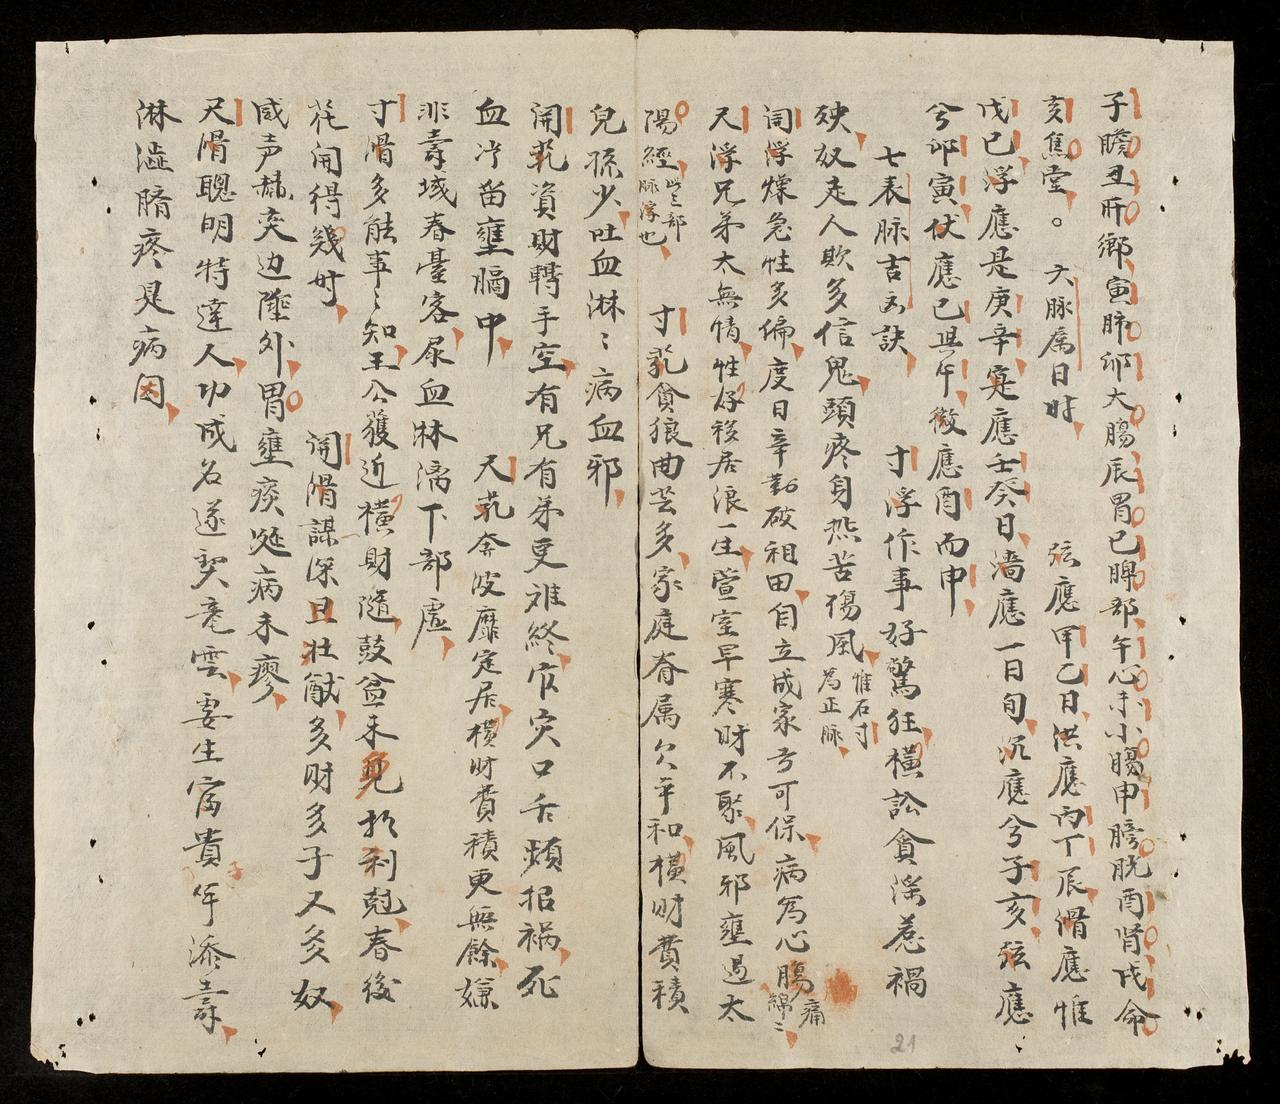 子膽丑肝鄉寅肺卯大腸辰胃巳脾部午心未小腸申膀胱酉腎戌命
亥焦堂。 六脉属日时 弦應甲乙日洪應丙丁辰滑應惟
戊己浮應是庚辛寔應壬癸日濇應一日旬沉應兮子亥弦應
兮卯寅伏應已丑午微應酉而申
七表脉吉凶訣 寸浮作事好驚狂橫訟貪淫惹禍
殃奴走人欺多信鬼頭疼身热苦傷風惟石寸為正脉
関浮燥急性多偏度日辛勤破祖田自立成家方可保病為心腸痛綿〻
尺浮兄弟太無情性好移居浪一生萱室早寒财不聚風邪壅過太
陽經此三部脉浮也 寸芤貪狼曲芸多家庭眷属欠辛和橫財費積
兒孫少吐血淋〻病血邪
関芤資財轉手空有兄有弟更难終官灾口舌頻招禍死
血冷留壅膈中 尺芤奔波靡定居橫财費積更無餘嫌
非壽域春臺客尿血淋漓下部虛
寸滑多能事〻知王公獲近橫財隨鼓盆未免於利尅春後
花開得幾时 関滑謀深且壮猷多财多子又多奴
咸声赫奕边陲外胃壅痰涎病未瘳
尺滑聰明特達人功成名遂契亳雲妻生富貴子年添壽
淋澁臍疼是病因
21